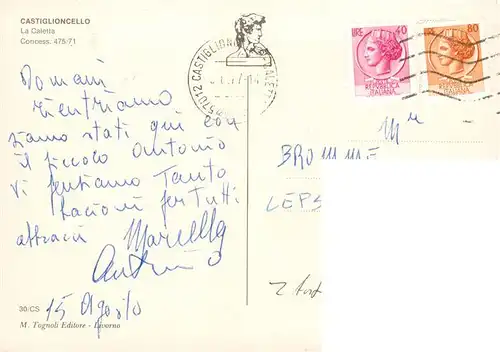 CASTIGLIONCELLO
La Caletta
Concess. 475/71
57012 CASTIGLION
LIRE 40
REPUBBLICA
ITALIANA
LIRE 80
REPUBBLICA
ITALIANA
Domani
rientriamo
siamo stati qui con
il piccolo Antonio
Vi pensiamo Tanto
Bacioni per Tutti
abbracci Marcella
15 Agosto
30/CS
M. Tognoli Editore - Livorno